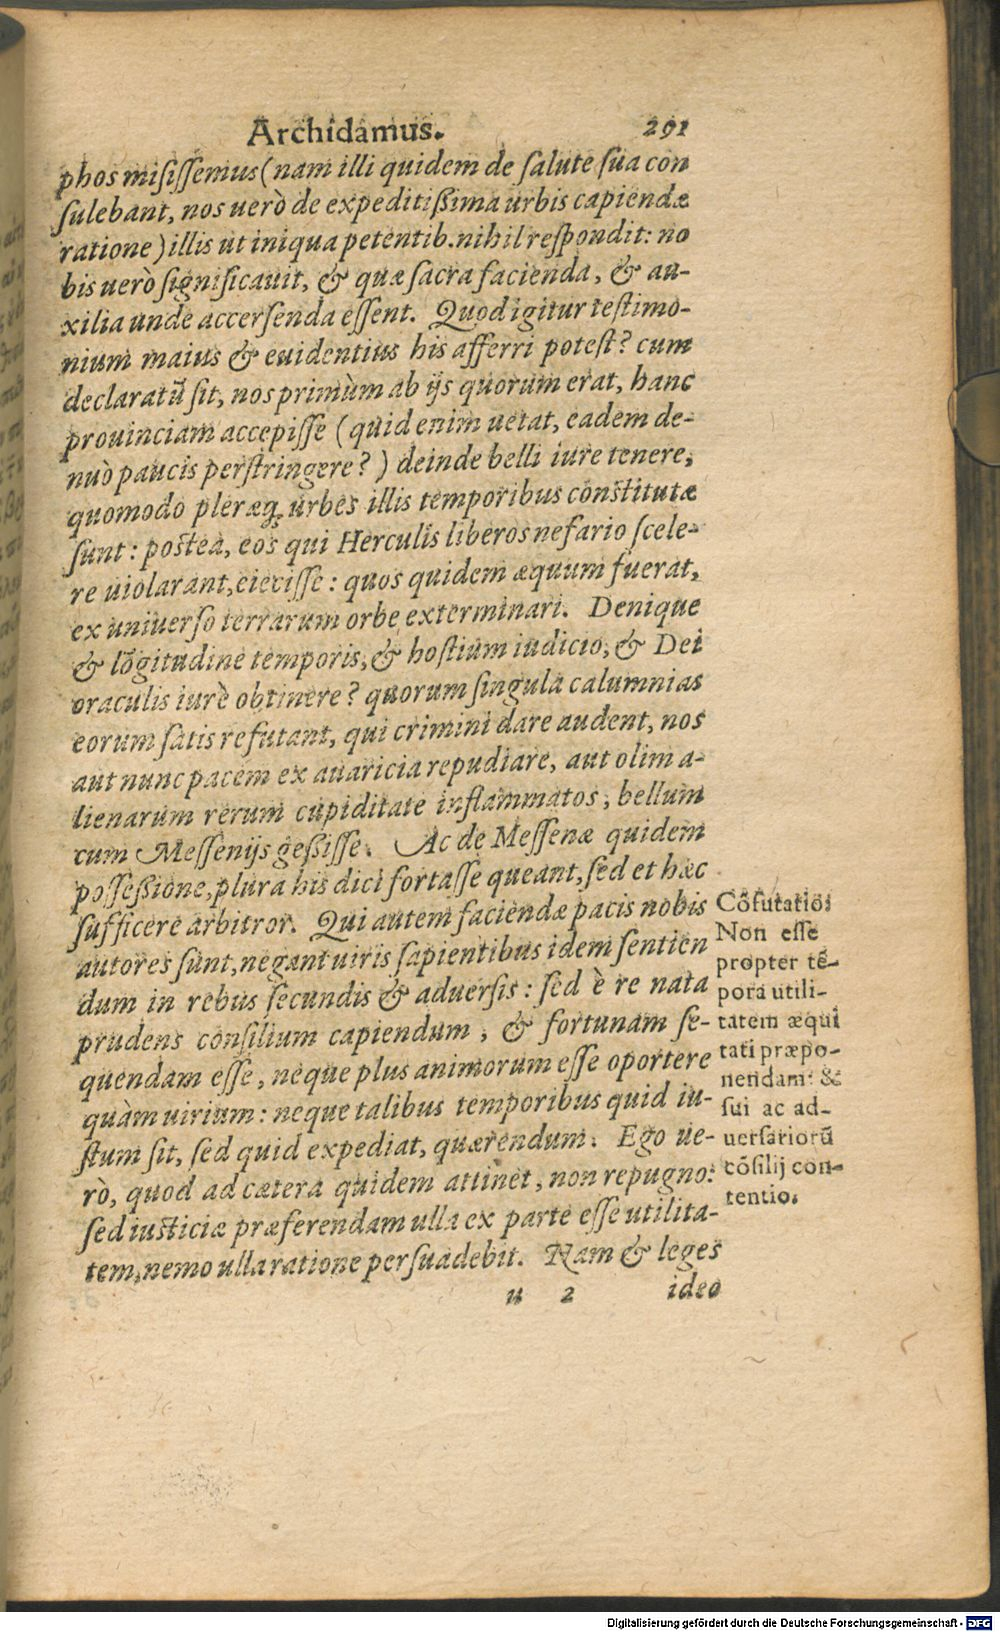 Archidamus. 291
phos misissemus (nam illi quidem de salute sua con
sulebant, nos uerò de expeditißima urbis capiendæ
ratione) illis ut iniqua petentib. nihil respondit: no
bis uerò significauit, & quæ sacra facienda, & au-
xilia unde accersenda essent. Quod igitur testimo-
nium maius & euidentius his afferri potest? cum
declaratũ sit, nos primùm ab ijs quorum erat, hanc
prouinciam accepisse (quid enim uetat, eadem de-
nuò paucis perstringere?) deinde belli iure tenere,
quomodo pleræq; urbes illis temporibus constitutæ
sunt: postea, eos qui Herculis liberos nefario scele-
re uiolarant, eiecisse: quos quidem æquum fuerat,
ex uniuerso terrarum orbe exterminari. Denique
& lõgitudine temporis, & hostium iudicio, & Dei
oraculis iurè obtinere? quorum singula calumnias
eorum satis refutant, qui crimini dare audent, nos
aut nunc pacem ex auaricia repudiare, aut olim a-
lienarum rerum cupiditate inflammatos, bellum
cum Messenijs geßisse. Ac de Messenæ quidem
possessione, plura his dici fortasse queant, sed et hæc
sufficere arbitror. Qui autem faciendæ pacis nobis
autores sunt, negant uiris sapientibus idem sentien
dum in rebus secundis & aduersis: sed è re nata
prudens consilium capiendum, & fortunam se-
quendam esse, neque plus animorum esse oportere
quàm uirium: neque talibus temporibus quid iu-
stum sit, sed quid expediat, quærendum. Ego ue-
rò, quod ad cætera quidem attinet, non repugno:
sed iusticiæ præferendam ulla ex parte esse utilita-
tem, nemo ulla ratione persuadebit. Nam & leges
u 2 ideo
Cõfutatio:
Non esse
propter tẽ-
pora utili-
tatem æqui
tati præpo-
nendam: &
sui ac ad-
uersariorũ
cõsilij con-
tentio.
Digitalisierung gefördert durch die Deutsche Forschungsgemeinschaft - DFG